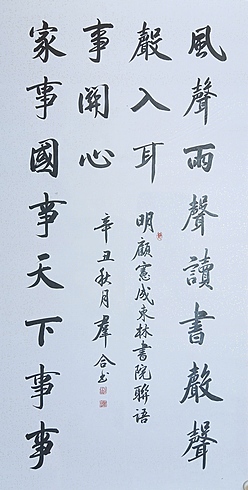 風聲雨聲讀書聲聲
聲入耳
家事國事天下事事
事關心
明顧憲成東林書院聯語
辛丑秋月羣合书